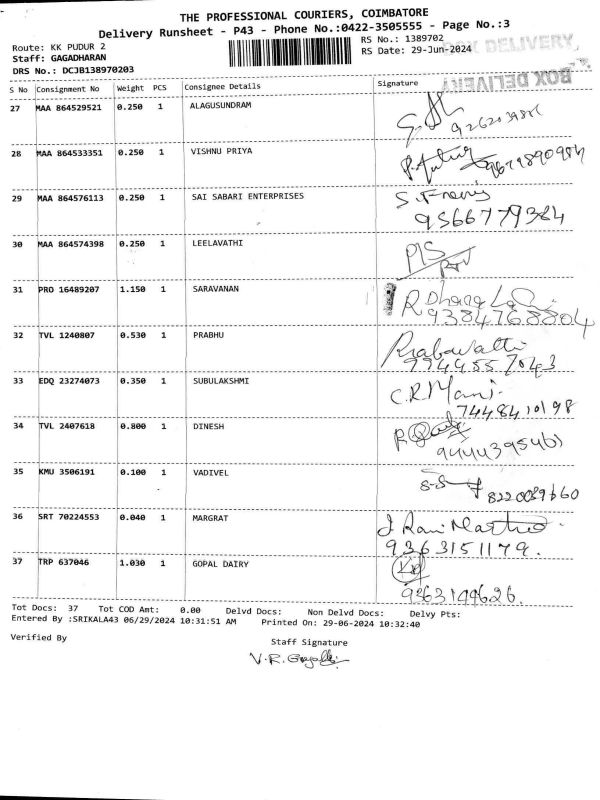 THE PROFESSIONAL COURIERS, COIMBATORE
Delivery Runsheet - P43 - Phone No.:0422-3505555 - Page No.:3
Route: KK PUDUR 2
RS No.: 1389702
Staff: GAGADHARAN
RS Date: 29-Jun-2024
BOX DELIVERY
DRS No.: DCJB138970203
BOX DELIVERY
S No Consignment No Weight PCS Consignee Details Signature
27 MAA 864529521 0.250 1 ALAGUSUNDRAM
28 MAA 864533351 0.250 1 VISHNU PRIYA
29 MAA 864576113 0.250 1 SAI SABARI ENTERPRISES
9566779384
30 MAA 864574398 0.250 1 LEELAVATHI
31 PRO 16489207 1.150 1 SARAVANAN
9384768804
32 TVL 1240807 0.530 1 PRABHU
33 EDQ 23274073 0.350 1 SUBULAKSHMI C.R. Mani.
7448410198
34 TVL 2407618 0.800 1 DINESH
35 KMU 3506191 0.100 1 VADIVEL
8220089660
36 SRT 70224553 0.040 1 MARGRAT
9363151179.
37 TRP 637046 1.030 1 GOPAL DAIRY
Tot Docs: 37 Tot COD Amt: 0.00 Delvd Docs: Non Delvd Docs: Delvy Pts:
Entered By :SRIKALA43 06/29/2024 10:31:51 AM Printed On: 29-06-2024 10:32:40
Verified By
Staff Signature